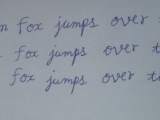 n fox jumps over
fox jumps over t
fox jumps over t